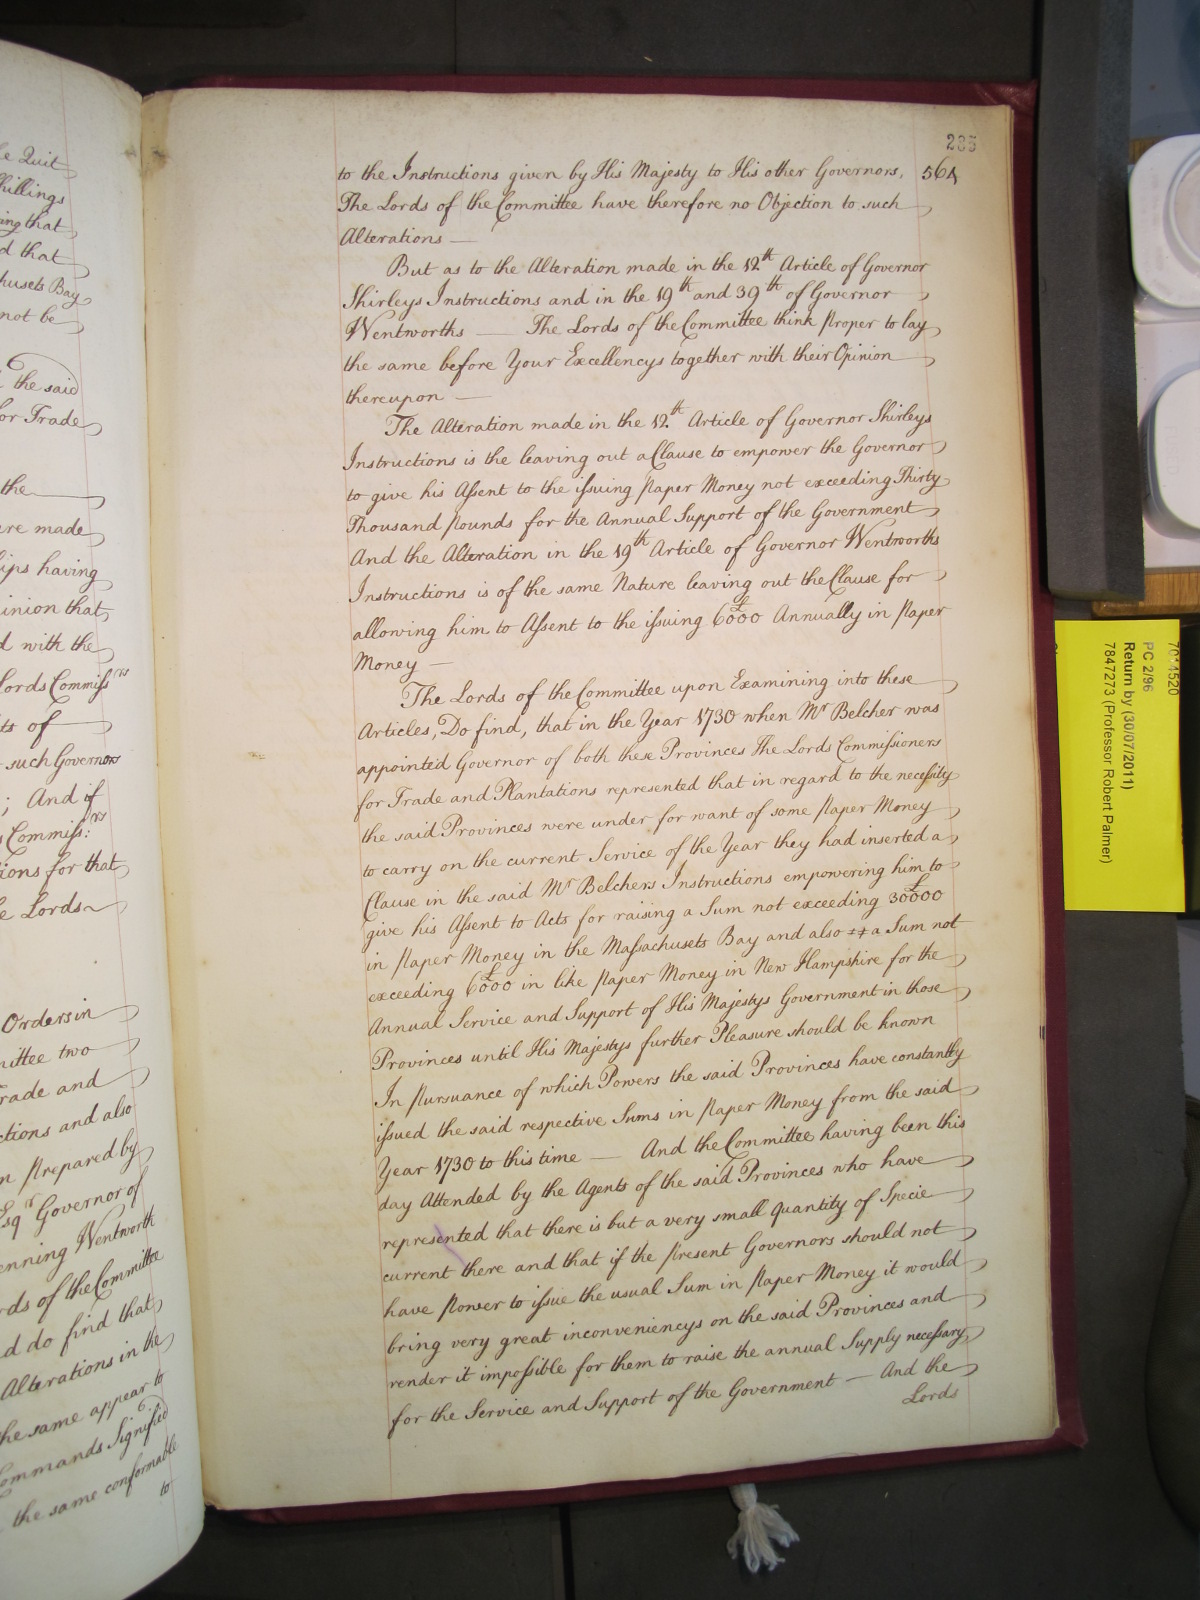 285
564
to the Instructions given by His Majesty to His other Governors,
The Lords of the Committee have therefore no Objection to such
Alterations —
But as to the Alteration made in the 12th Article of Governor
Shirleys Instructions and in the 19th and 39th of Governor
Wentworths — The Lords of the Committee think proper to lay
the same before Your Excellencys together with their Opinion
thereupon —
The Alteration made in the 12.th Article of Governor Shirleys
Instructions is the leaving out a Clause to empower the Governor
to give his Assent to the issuing paper Money not exceeding Thirty
Thousand pounds for the Annual Support of the Government
And the Alteration in the 19th Article of Governor Wentworths
Instructions is of the same Nature leaving out the Clause for
allowing him to Assent to the issuing £6000 Annually in paper
Money —
The Lords of the Committee upon Examining into these
Articles, Do find, that in the Year 1730 when Mr Belcher was
appointed Governor of both these Provinces The Lords Commissioners
for Trade and Plantations represented that in regard to the necessity
the said Provinces were under for want of some paper Money
to carry on the current Service of the Year they had inserted a
Clause in the said Mr Belchers Instructions empowering him to
give his Assent to Acts for raising a Sum not exceeding £30000
in paper Money in the Massachusets Bay and also a Sum not
exceeding £6000 in like paper Money in New Hampshire for the
Annual Service and Support of His Majestys Government in those
Provinces until His Majestys further Pleasure should be known
In pursuance of which Powers the said Provinces have constantly
issued the said respective Sums in paper Money from the said
Year 1730 to this time — And the Committee having been this
day Attended by the Agents of the said Provinces who have
represented that there is but a very small quantity of Specie
current there and that if the present Governors should not
have power to issue the usual Sum in paper Money it would
bring very great inconveniencys on the said Provinces and
render it impossible for them to raise the annual Supply necessary
for the Service and Support of the Government — And the
Lords
Quit
hillings
that
d that
husets Bay
not be
the said
or Trade
the
ere made
ips having
inion that
d with the
Lords Commissrs
ts of
such Governors
; And if
Commiss:rs
tions for that
e Lords
Orders in
mittee two
rade and
ctions and also
n prepared by
Esqr Governor of
enning Wentworth
rds of the Committee
nd do find that
Alterations in the
the same appear to
ommands Signified
the same conformable
to
7014520
PC 2/96
Return by (30/07/2011)
7847273 (Professor Robert Palmer)